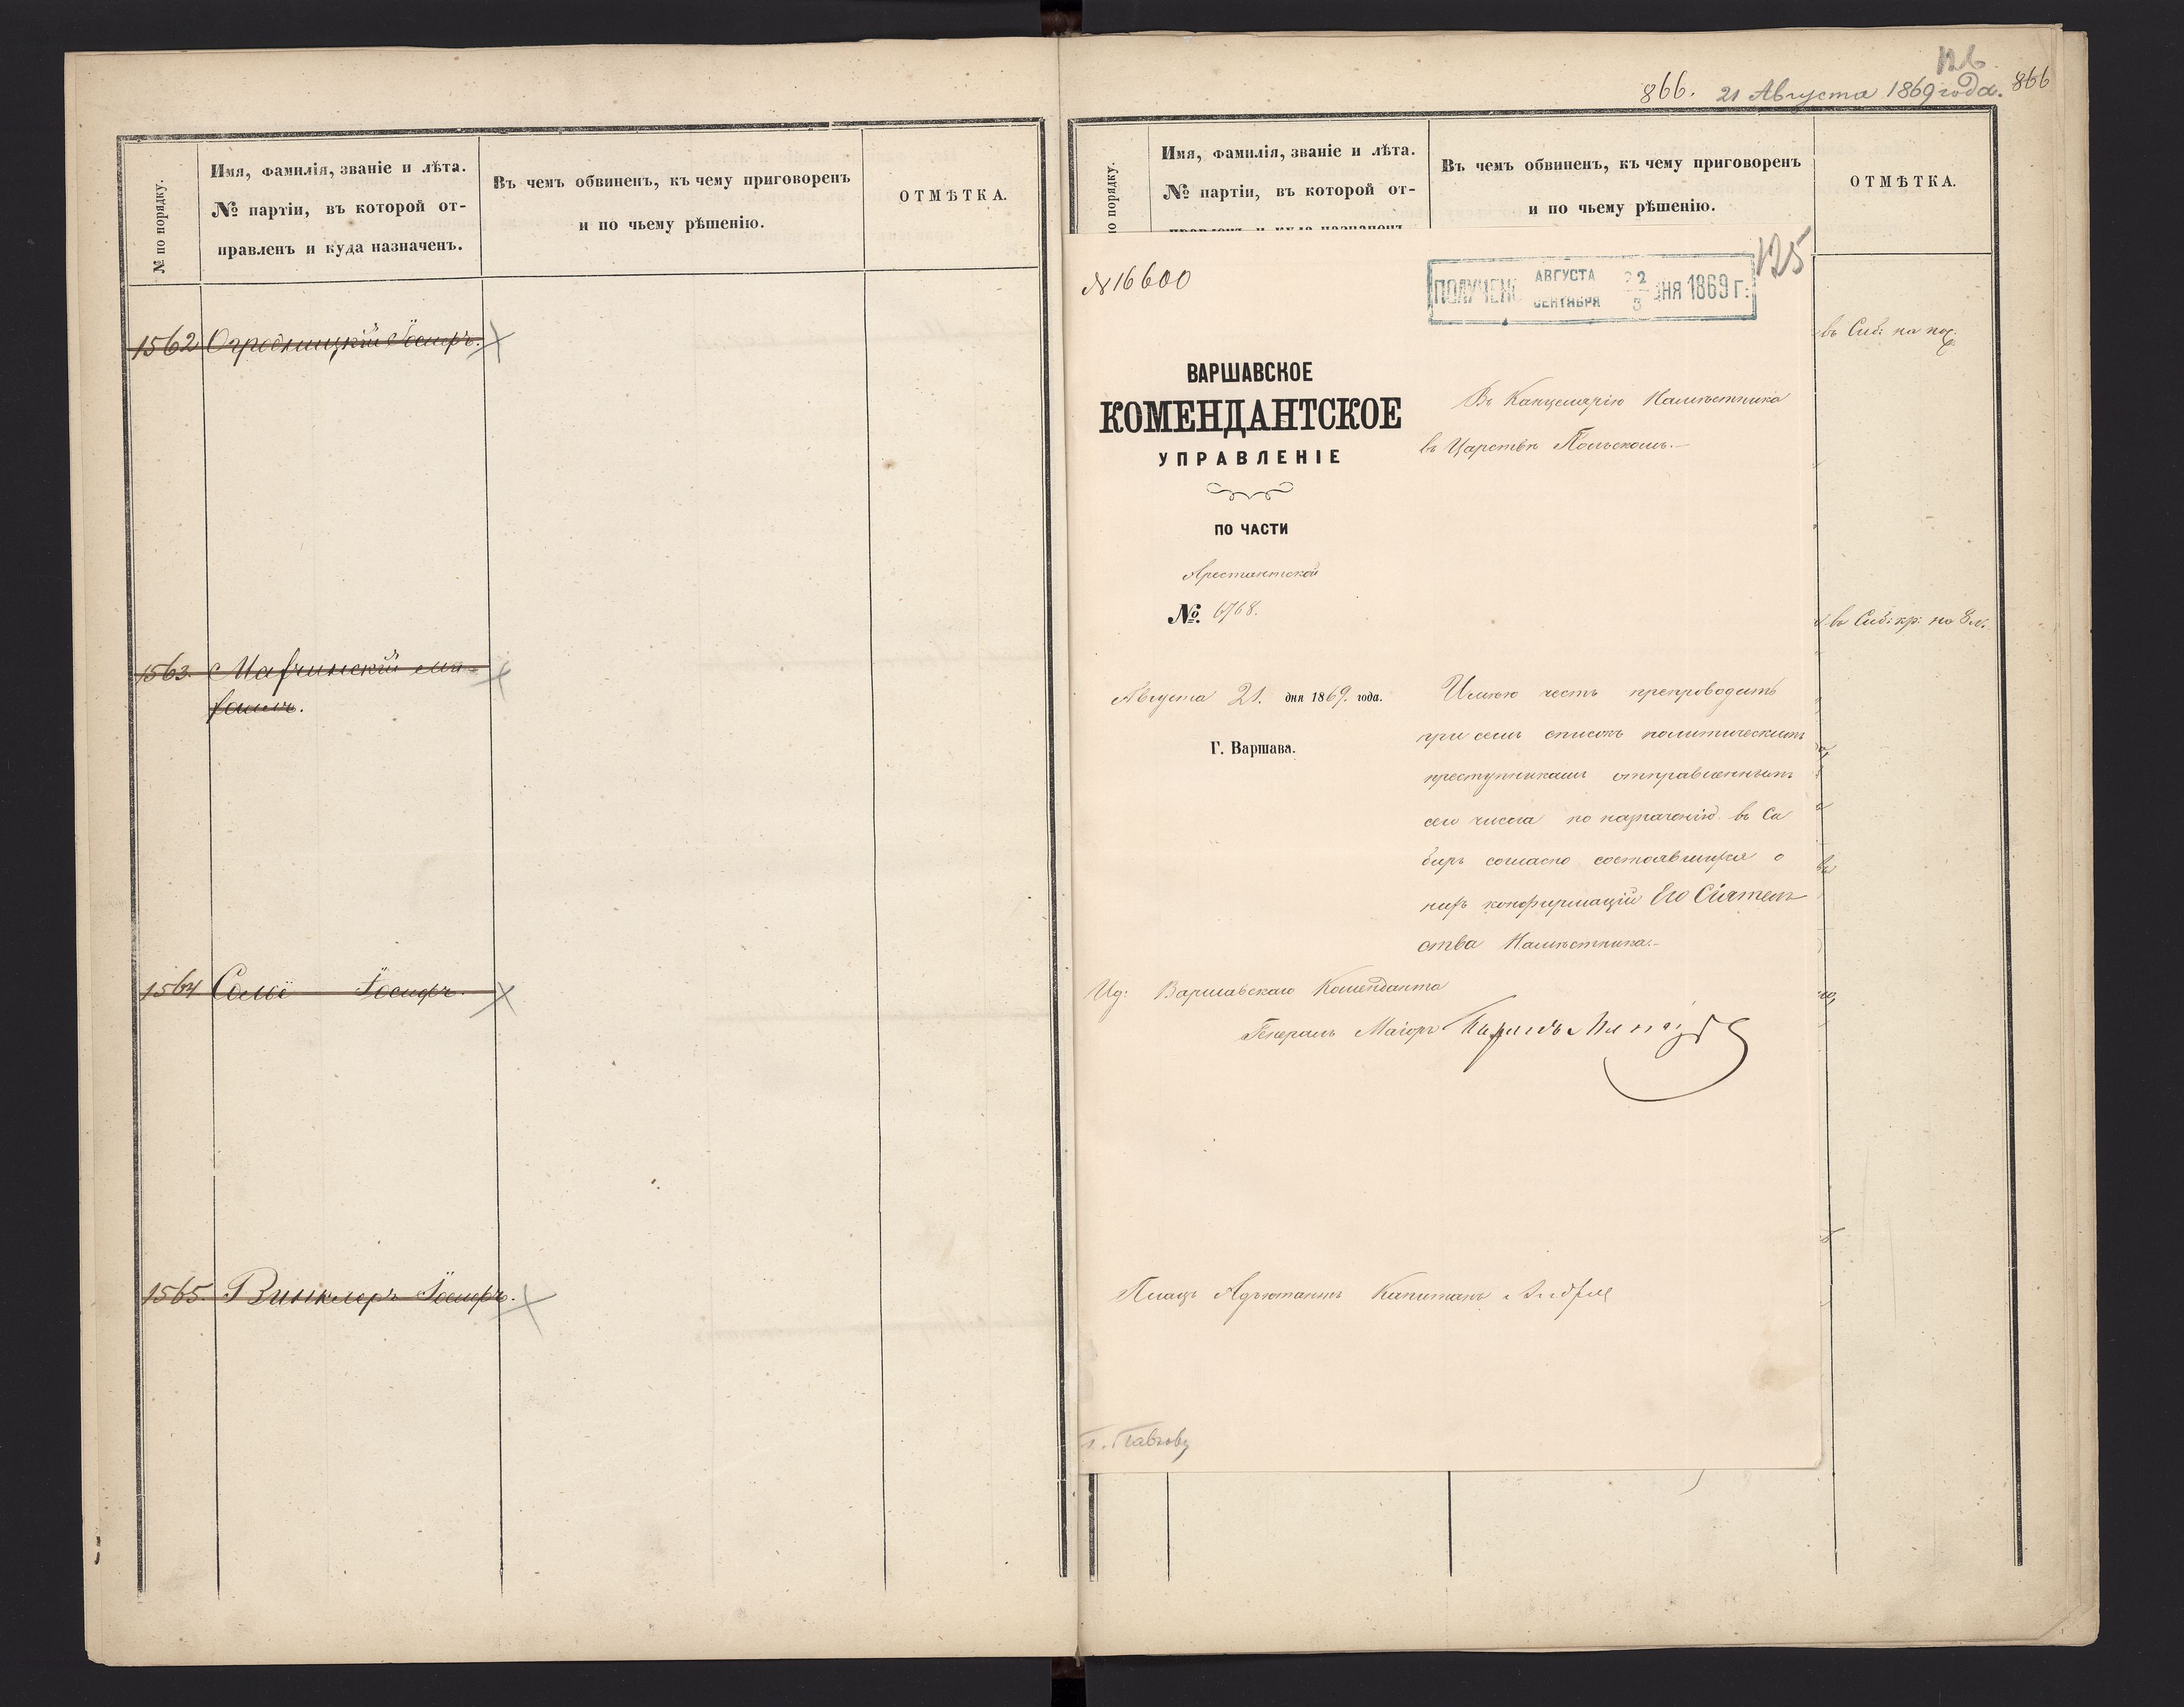 № по порядку.
Имя, фамилія, званіе и лѣта.
№ партіи, въ которой от-
правленъ и куда назначенъ.
Въ чемъ обвиненъ, къ чему приговоренъ
и по чьему рѣшенію.
ОТМѢТКА.
1562 Огродницкій Іосифъ.
1563.
1564 Іосифъ.
1565. Винклеръ Іосифъ.
126
866. 21 Августа 1869 года. 866
по порядку.
Имя, фамилія, званіе и лѣта.
№ партіи, въ которой от-
правленъ и куда назначенъ.
Въ чемъ обвиненъ, къ чему приговоренъ
и по чьему рѣшенію.
ОТМѢТКА.
въ Сиб: на
въ Сиб: кр: на 8 л.
№ 16600
125
ПОЛУЧЕНО АВГУСТА 22 ДНЯ 1869 г.
СЕНТЯБРЯ 3
ВАРШАВСКОЕ
КОМЕНДАНТСКОЕ
УПРАВЛЕНІЕ
ПО ЧАСТИ
Арестантской
№. 6768.
Августа 21. дня 1869. года.
Г. Варшава.
Въ Канцелярію Намѣстника
въ Царствѣ Польскомъ.—
Имѣю честь препроводить
при семъ списокъ политическимъ
преступникамъ отправленнымъ
сего числа по назначенію въ Си
бирь согласно состоявшихся о
нихъ конфирмацій Его Сіятель
ства Намѣстника.—
Ид: Варшавскаго Коменданта
Генералъ Маіоръ
Плацъ Адъютантъ Капитанъ